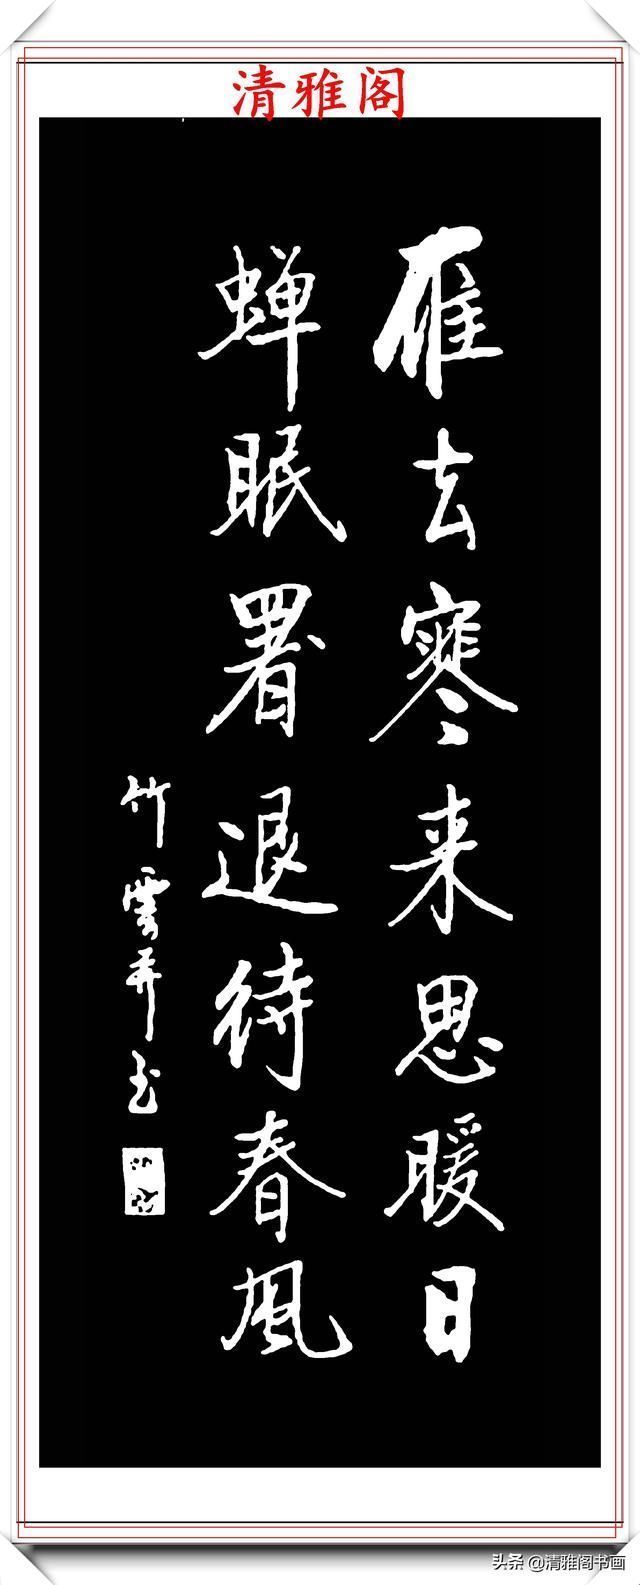 清雅阁
雁去寒来思暖日
蝉眠署退待春风
竹雲弄书
头条@清雅阁书画